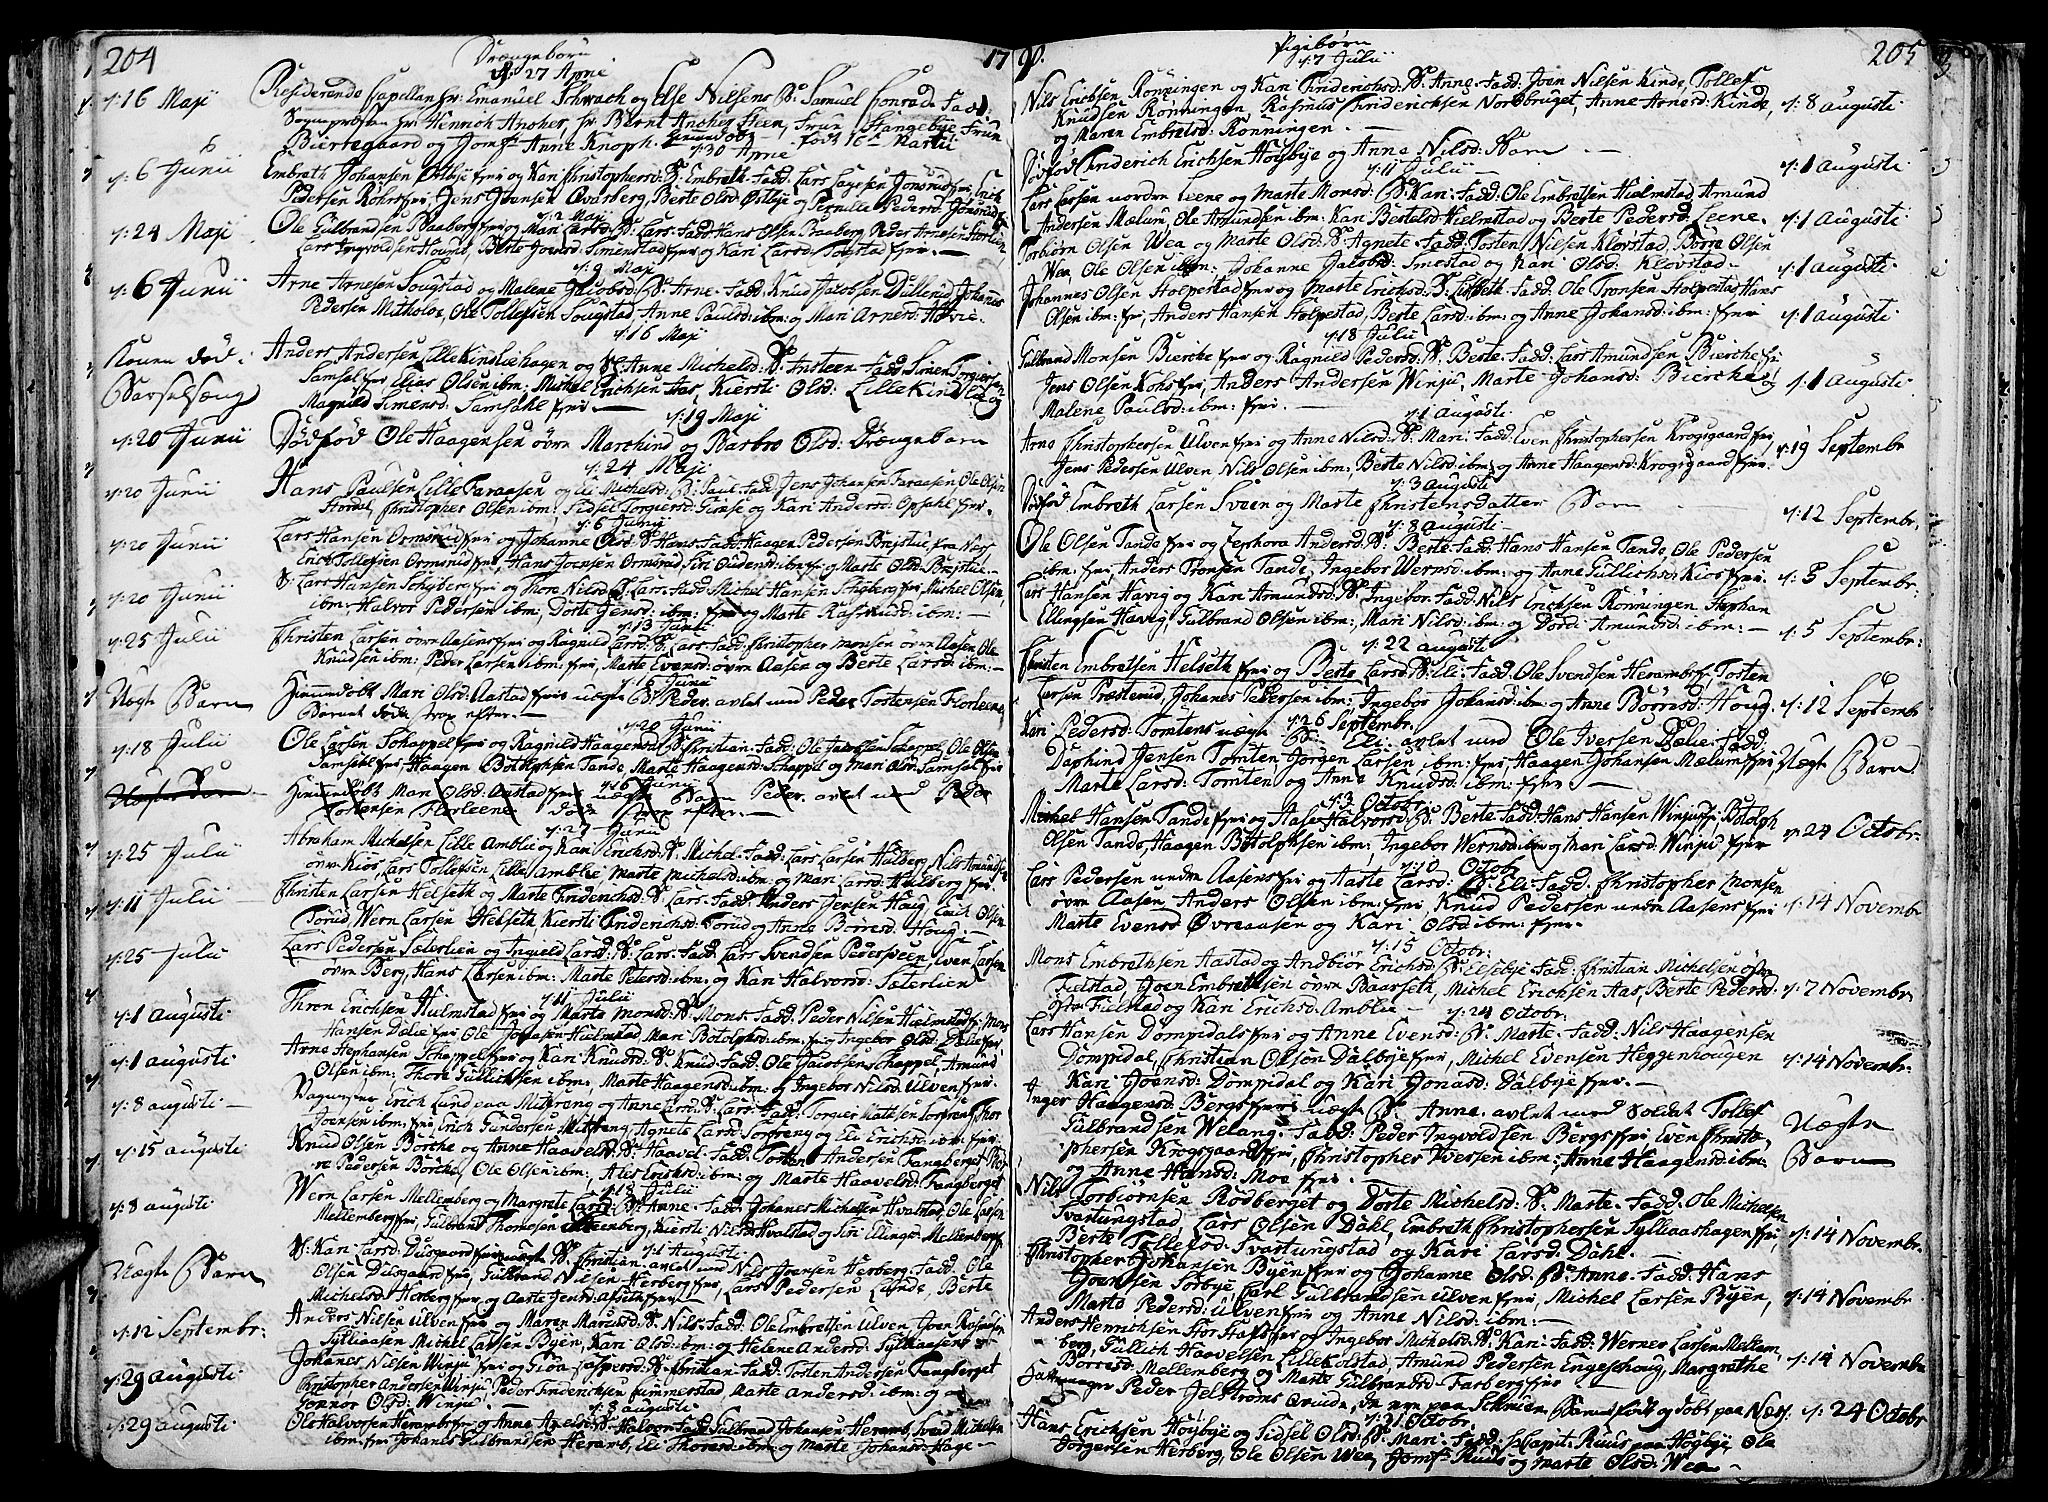 204
Drængebørn
17
d: 27 April
d: 16 Maji
Residerende Capellan hr: Emanuel Schwach og Else Nilsens B: Samuel Conrad: Fadd:
Sognepræsten hr: Hennich Ancher, hr: Bernt Ancher Steen, Frue Stangebye, Frue
Biertegaard og Jomf: Anne Knoph. født 16 Martii
d: 30 April
d: 6 Junii
Embreth Johansen og Kari Christophersd: B: Embreth. Fadd: Lars
Pedersen Jens Joensen Qvarberg, Berte Olsd: Østlye og Pernille Pedersd:
d: 2 Maji
d: 24 Maji
Ole Gulbrandsen Baaberg og Mari Larsd: B: Lars. Fadd: Hans Olsen Baaberg Peder Arnesen
Lars Ingvoldsen Houmb, Berte Joensd: Simenstad og Kari Larsd: Fogstad
d: 9 Maji
d: 6 Junii
Arne Arnesen Sougstad og Malene Jacobsd: B: Arne. Fadd: Knud Jacobsen Dullerud, Johannes
Pedersen Mitholoe, Ole Tollefsen Sougstad, Anne Paulsd: ibm: og Mari Arnesd:
d: 16 Maji
Konen død i
Barselseng
Anders Andersen Lillekindliehagen og Anne Michelsd: B: Ansteen. Fadd: Simen Torgiersen
Samsal Elias Olsen ibm: Michel Erichsen Aas, Kiersti Olsd: Lille Kindlie og
Magnild Simensd: Samsahl
d: 19 Maji
d: 20 Junii
Dødfød Ole Haagensen øvre Marchind og Barbro Olsd: Drængebarn
d: 24 Maji
d: 20 Junii
Hans Paulsen Lille Faraasen og Eli Michelsd: B: Paul. Fadd: Jens Johansen Faraasen Ole Olsen
Christopher Olsen ibm: Sidsel Torgiersd: Gimse og Kari Andersd: Opsahl
d: 6 Junii
d: 20 Junii
Lars Hansen Ormsrud og Johanne Olsd: B: Hans. Fadd: Haagen Pedersen
Erich Tollefsen Ormsrud, Hans Joensen Ormsrud Siri Oudensd: ibm: og Marte Olsd:
d: 20 Junii
S: Lars Hansen Schyberg og Thora Nilsd: B: Lars. Fadd: Michel Hansen Schyberg, Michel Olsen
ibm: Halvor Pedersen ibm: Dorte Jensd: ibm: og Marte Rasmusd: ibm:
d: 13 Junii
d: 25 Julii
Christen Larsen øvre Aasen og Ragnild Larsd: B: Lars. Fadd: Christopher Monsen øvre Aasen, Ole
Knudsen ibm: Peder Larsen ibm: Marte Evensd: øvre Aasen og Berte Larsd: ibm:
d: 16 Junii
Uægte Barn
Hiemmedøbt Mari Olsd: Aastad uægte B: Peder. avlet med Peder Tostensen Florleene
Barnet døde strax efter.
d: 20 Junii
d: 18 Julii
Ole Larsen Schappel og Ragnild Haagensd: B: Christian. Fadd: Ole Jacobsen Schappel, Ole Olsen
Samsahl, Haagen Botolphsen Tande, Marte Haagensd: Schappel og Mari Olsd: Samsal
d: 16 Junii
Uægte Barn
Hiemmedøbt Mari Olsd: Aastad uægte Barn Peder. avlet med Peder
Tostensen Florleene døde strax efter.
d: 27 Junii
d: 25 Julii
Abraham Michelsen Lille Amblie og Kari Erichsd: B: Michel. Fadd: Lars Larsen Hulberg, Nils Amundsen
øvre Kios, Lars Tollefsen Lille Amblie Marte Michelsd: ibm: og Mari Larsd: Hulberg
d: 11 Julii
Christen Larsen Helseth og Marte Friderichsd: B: Lars. Fadd: Anders Jensen Houg, Olsen
Torud Wern Larsen Helseth Kiersti Friderichsd: Torud og Anne Børresd: Houg.
d: 25 Julii
Lars Pedersen Sæterlien og Ingield Larsd: B: Lars. Fadd: Lars Svendsen Pedersveen, Even Larsen
øvre Berg, Hans Larsen ibm: Marte Petersd: ibm: og Kari Halvorsd: Sæterlien
d: 11 Julii
d: 1 Augusti
Thron Erichsen Hielmstad og Marte Monsd: B: Mons. Fadd: Peder Nielsen Hielmstad, Mons
Hansen Dælie Ole Joensen Hielmstad, Mari Botolphsd: ibm: og Ingebor Olsd: Dælie
d: 1 Augusti
Arne Stephansen Schappel og Kari Knudsd: B: Knud. Fadd: Ole Jacobsen Schappel, Amund
Olsen ibm: Thore Gullichsen ibm: Marte Haagensd: ibm: og Ingebor Nilsd: Ulven
d: 8 Augusti
Erich Lund paa Mitteng og Anne Larsd: B: Lars. Fadd: Torger
Joensen ibm: Erich Gundersen Mitteng, Agnete Larsd: og Eli Erichsd: ibm:
d: 15 Augusti
Knud Olsen Børche og Anne Haavelsd: B: Haavel. Fadd: Tosten Andersen Fangberget
Pedersen Børche, Ole Olsen ibm: ibm: og Marte Haavelsd: Fangberget
d: 18 Julii
d: 8 Augusti
Wern Larsen Mellemberg og Margrete Larsd: B: Anne. Fadd: Johanes Michelsen Hvalstad, Ole Larsen
Mellemberg, Gulbrand Thomesen Mellemberg, Kiersti Nilsd: Hvalstad og Siri Ellingsd: Mellemberg
d: 1 Augusti
Uægte Barn
S: Kari Larsd: Dusgaard uægte B: Christian. avlet med Nils Joensen Herberg. Fadd: Ole
Olsen Dusgaard, Gulbrand Nilsen Herberg, Lars Pedersen Lunde, Berte
Michelsd: Herberg og Aaste Jensd:
d: 12 Septembr:
Anders Nilsen Ulven og Maren Mariusd: B: Nils. Fadd: Ole Embretsen Ulven Joen Rasmusen
Sylliaasen Michel Larsen Byen, Kari Olsd: ibm: og Helene Andersd: Sylliaasen
d: 29 Augusti
Johanes Nilsen Winju og Giøa Caspersd: B: Christian. Fadd: Tosten Andersen Fangberget
Christopher Andersen Winju Peder Friderichsen Rimmerstad, Marte Andersd: ibm: og
Gonnor Olsd: Winju.
d: 8 Augusti
d: 29 Augusti
Ole Halvorsen Heramb og Anne Axelsd: B: Halvor. Fadd: Gulbrand Johansen Heramb, Svend Michelsen
ibm: Johanes Gulbrandsen Heramb, Eli Thorsd: ibm: og Marte Johansd: Hage
205
Pigebørn
d: 7 Julii
Nils Erichsen Rønningen og Kari Friderichsd: B: Anne. Fadd: Joen Nilsen Kinde, Tollef
Knudsen Rønningen, Rasmus Friderichsen Nordbruget, Anne Arnesd: Kinde,
og Maren Embretsd: Rønningen.
d: 8 Augusti
Dødfød Friderich Erichsen Høysbye og Anne Nilsd: Barn
d: 1 Augusti
d: 11 Julii
Lars Larsen nordre Leene og Marte Monsd: B: Kari. Fadd: Ole Embretsen Hielmstad, Amund
Andersen Mælum, Ole Amundsen ibm: Kari Bertelsd: Hielmstad og Berte Pedersd: Leene.
d: 1 Augusti
Torbiørn Olsen Wea og Marte Olsd: B: Agnete. Fadd: Tosten Nilsen Klovstad, Børre Olsen
Wea Ole Olsen ibm: Johanne Jacobsd: Smestad og Kari Olsd: Klovstad
d: 1 Augusti
Johannes Olsen Holpestad og Marte Erichsd: B: Lisbeth. Fadd: Ole Tronsen Holpestad, Hans
Olsen ibm: Anders Hansen Holpestad, Berte Larsd: ibm: og Anne Johansd: ibm:
d: 1 Augusti
d: 18 Julii
Gulbrand Monsen Bierche og Ragnild Pedersd: B: Berte. Fadd: Lars Amundsen Bierche
Jens Olsen Kohs, Anders Andersen Winju, Marte Johansd: Bierche og
Malene Paulsd: ibm:
d: 1 Augusti
d: 1 Augusti
Arne Christophersen Ulven og Anne Nilsd: B: Mari. Fadd: Even Christophersen Krogsgaard
Jens Pedersen Ulven Nils Olsen ibm: Berte Nilsd: ibm: og Anne Haagensd: Krogsgaard
d: 19 Septembr
d: 3 Augusti
Dødfød Embreth Larsen Sveen og Marte Christensdatter Barn
d: 12 Septembr:
d: 8 Augusti
Ole Olsen Tande og Zephora Andersd: B: Berte. Fadd: Hans Hansen Tande, Ole Pedersen
ibm: Anders Tronsen Tande, Ingebor Wernsd: ibm: og Anne Gullichsd: Kios
d: 5 Septembr:
Lars Hansen Havig og Kari Amundsd: B: Ingebor. Fadd: Nils Erichsen Rønningen Stephan
Ellingsen Havig, Gulbrand Olsen ibm: Mari Nilsd: ibm: og Dordi Amundsd: ibm:
d: 5 Septembr:
d: 22 Augusti
Christen Embretsen Helseth og Berte Larsd: B: Eli. Fadd: Ole Svendsen Heramb, Tosten
Larsen Præsterud, Johanes Pedersen ibm: Ingebor Johansd: ibm: og Anne Børresd: Houg
d: 12 Septembr
d: 26 Septembr.
Kari Pedersd: Tomtens uægte B: Eli. avlet med Ole Iversen Fadd:
Daphind Jensen Tomten Jørgen Larsen ibm: Haagen Johansen Mælum,
Marte Larsd: Tomten og Anne Knudsd: ibm:
Uægte Barn
d: 3 Octobr
Michel Hansen Tande og Aase Halvorsd: B: Berte. Fadd: Hans Hansen Winju, Botolph
Olsen Tande, Haagen Botolphsen ibm: Ingebor Wernsd: ibm: og Mari Larsd: Winju
d: 24 Octobr:
d: 10 Octobr
Lars Pedersen nedre Aasens og Aaste Larsd: B: Eli. Fadd: Christopher Monsen
øvre Aasen, Anders Olsen ibm: Knud Pedersen nedre Aasens
Marte Evensd: Øvreaasen og Kari Olsd: ibm:
d: 14 Novembr
d: 15 Octobr:
Mons Embrethsen Aastad og Andbiør Erichsd: B: Elsebye. Fadd: Christian Michelsen
Fielstad, Joen Embretsen øvre Baarseth, Michel Erichsen Aas, Berte Pedersd:
Fielstad og Kari Erichsd: Amblie
d: 7 Novembr
d: 24 Octobr:
Lars Hansen Dompidals og Anne Evensd: B: Marte. Fadd: Nils Haagensen
Dompidal, Christian Olsen Dalbye, Michel Evensen Heggenhougen
Kari Joensd: Dompidal og Kari Jonasd: Dalbye
d: 14 Novembr.
Inger Haagensd: Bergs uægte B: Anne. avlet med Soldat Tollef
Gulbrandsen Welang. Fadd: Peder Ingvoldsen Bergs Even Christo-
phersen Krogsgaard, Christopher Iversen ibm: Anne Haagensd: ibm:
og Anne Hansd: Moe
Uægte
Barn
Nils Torbiørnsen Rødberget og Dorte Michelsd: B: Marte. Fadd: Ole Michelsen
Svartungstad, Lars Olsen Dahl, Embreth Christophersen Sylliaashagen
Berte Tollefsd: Svartungstad og Kari Larsd: Dahl.
d: 14 Novembr.
Christopher Johansen Byen og Johanne Olsd: B: Anne. Fadd: Hans
Joensen Sørbye, Carl Gulbrandsen Ulven, Michel Larsen Byen,
Marte Pedersd: Ulven og Anne Nilsd: ibm:
d: 14 Novembr.
Anders Henrichsen Stor og Ingebor Michelsd: B: Kari. Fadd: Werner Larsen Mellem-
berg, Gullich Haavelsen Lillekolstad, Amund Pedersen Engeschoug, Margrethe
Børresd: Mellemberg og Marte Gulbrandsd: Farberg
d: 14 Novembr
Peder Jelstrøms Qvinde, Barnet født og døbt paa Næss
d: 21 Octobr.
Hans Erichsen Høysbye og Sidsel Olsd: B: Mari. Fadd: Capit: Ruus paa Høysbye, Ole
Jørgensen Herberg, Ole Olsen Wea, Jomf: Ruus og Marte Olsd: Wea
d: 24 Octobr